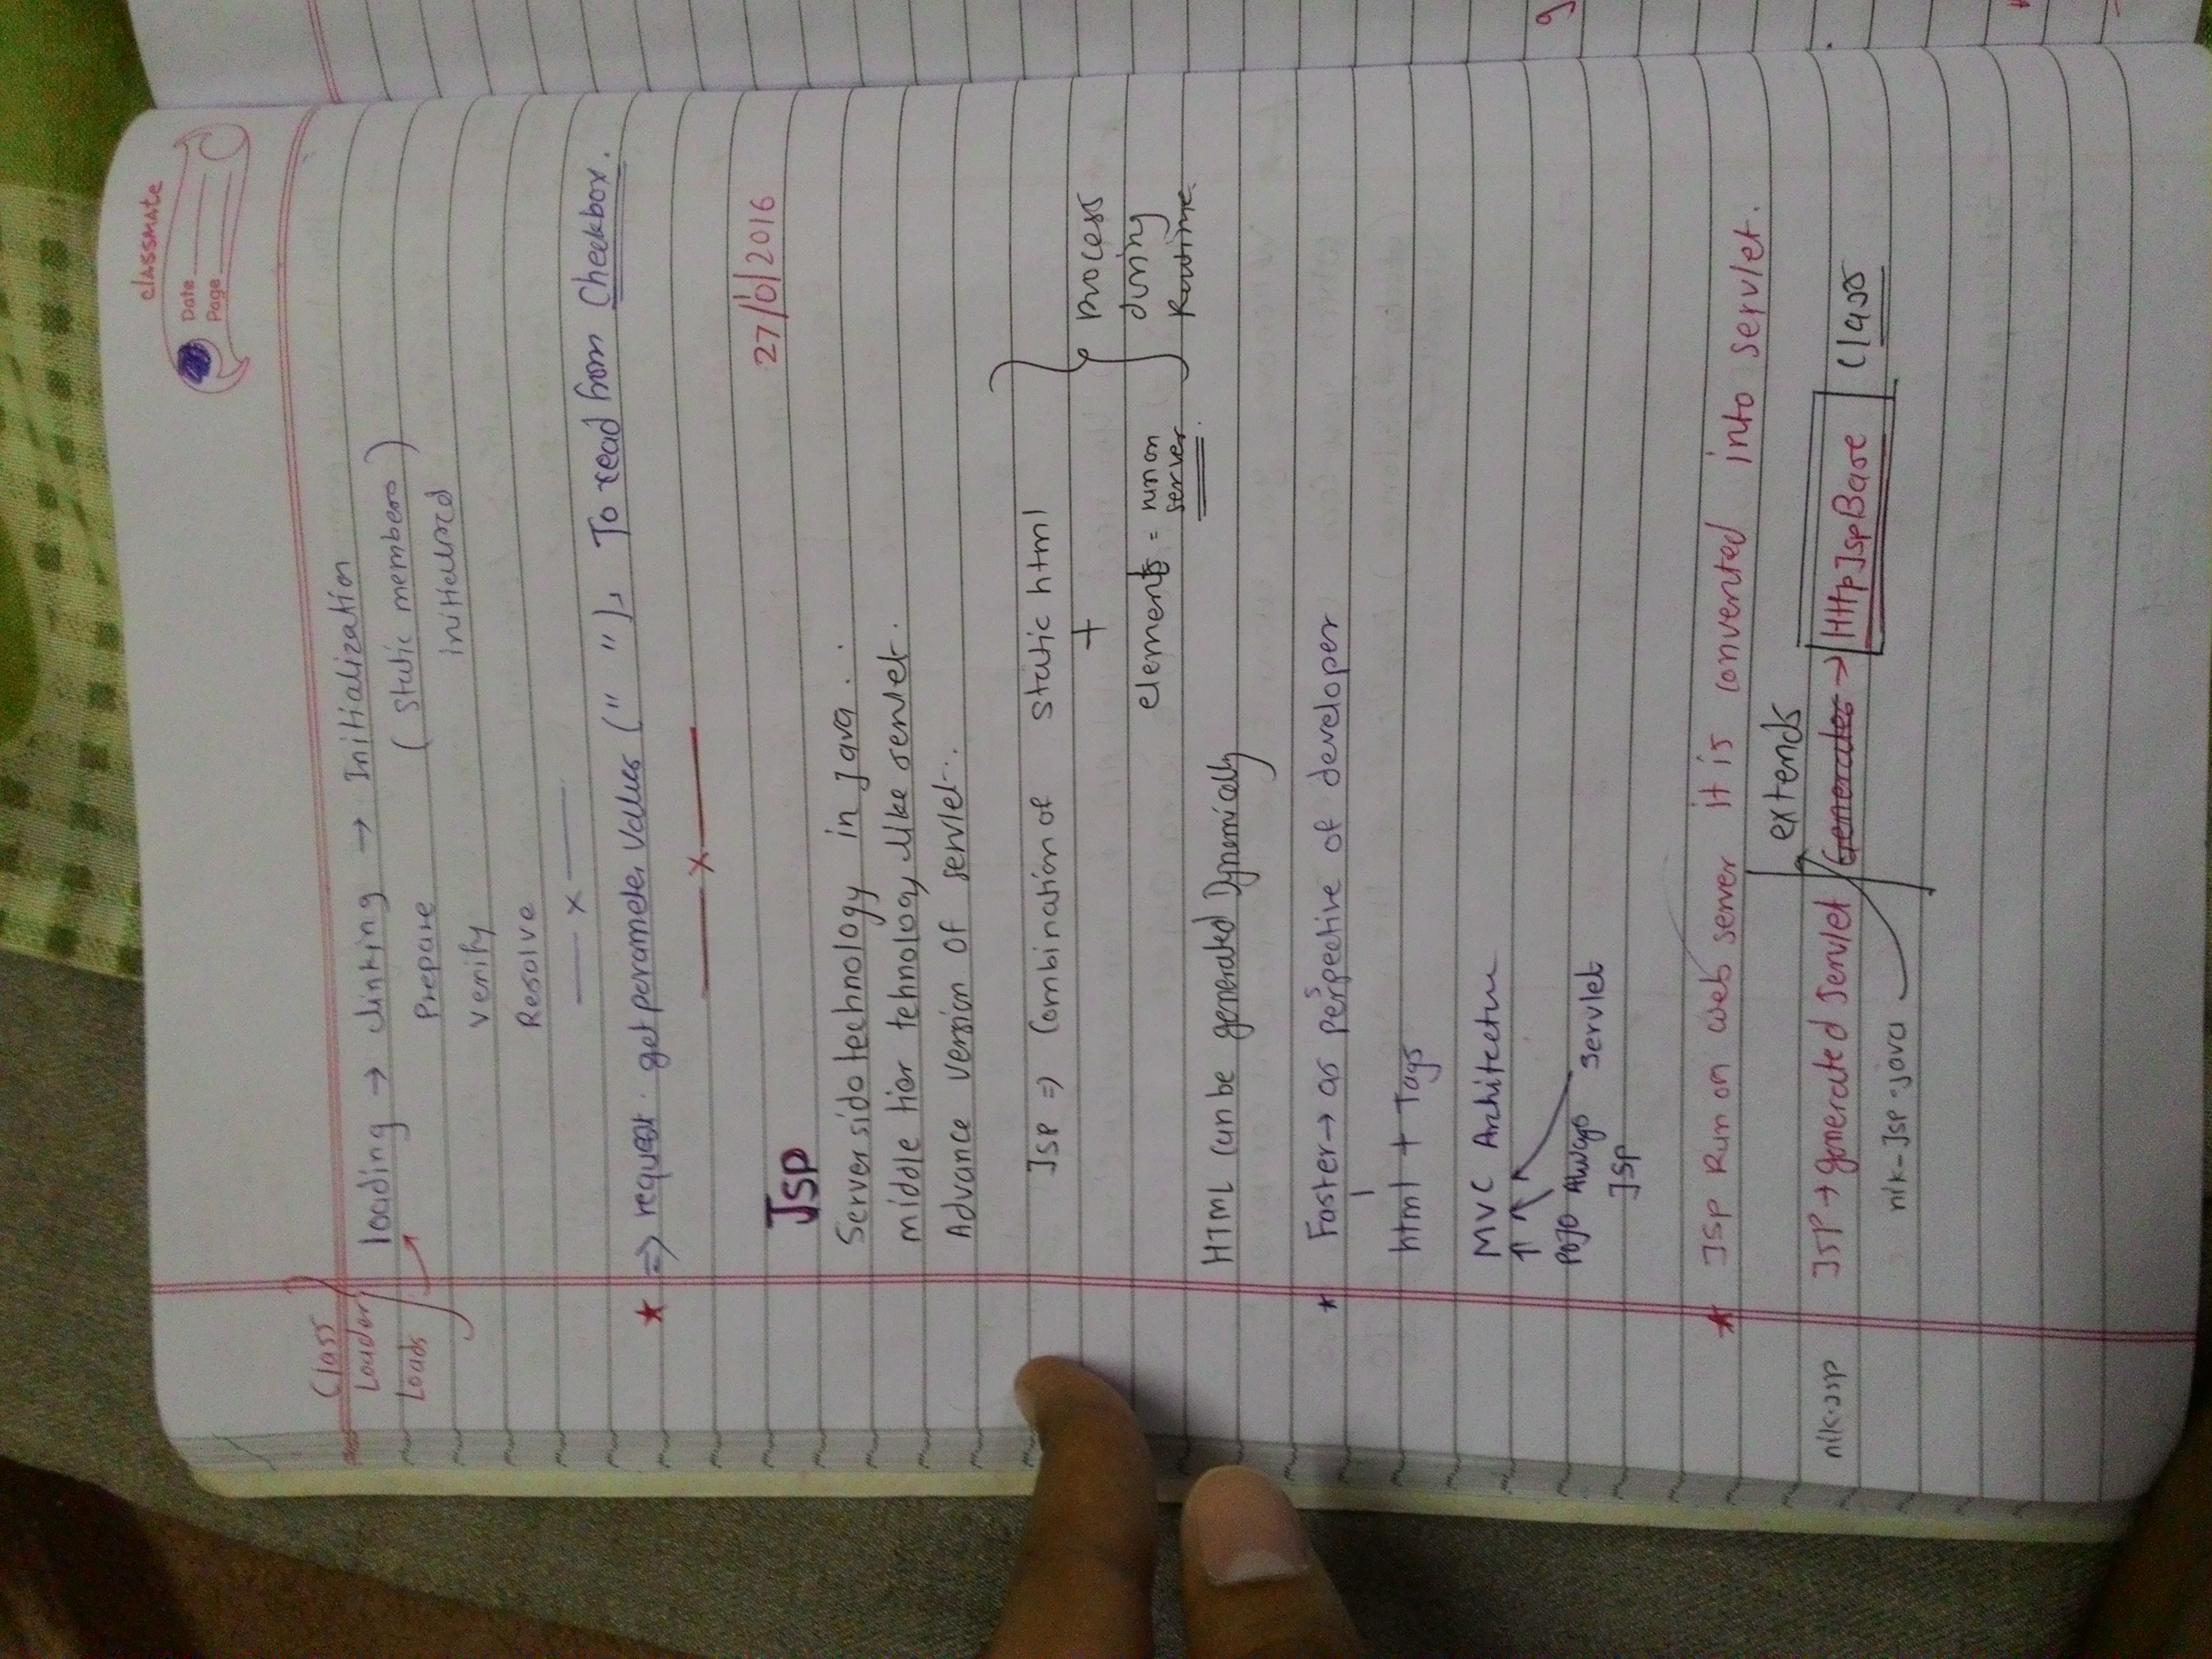 classmate
Date
Page
Class
Loader
Loads
loading → linking → Initialization
Prepare ( Static members )
Verify
Resolve
— x —
★ ⇒ request. getparameter values (" "); To read from Checkbox.
— x —
Jsp
Server side technology in Java.
middle tier tehnology like servlet.
Advance version of servlet.
Jsp ⇒ Combination of static html
+
elements = run on
server
Process
during
Runtime
HTML can be generated Dynamically
* Faster → as perspective of developer
html + Tags
MVC Architecture
POJO Always servlet
JSP
* JSP Run on web server it is converted into servlet.
extends
nik.jsp JSP → generated Servlet Generates → HttpJspBase Class
nik-Jsp.java